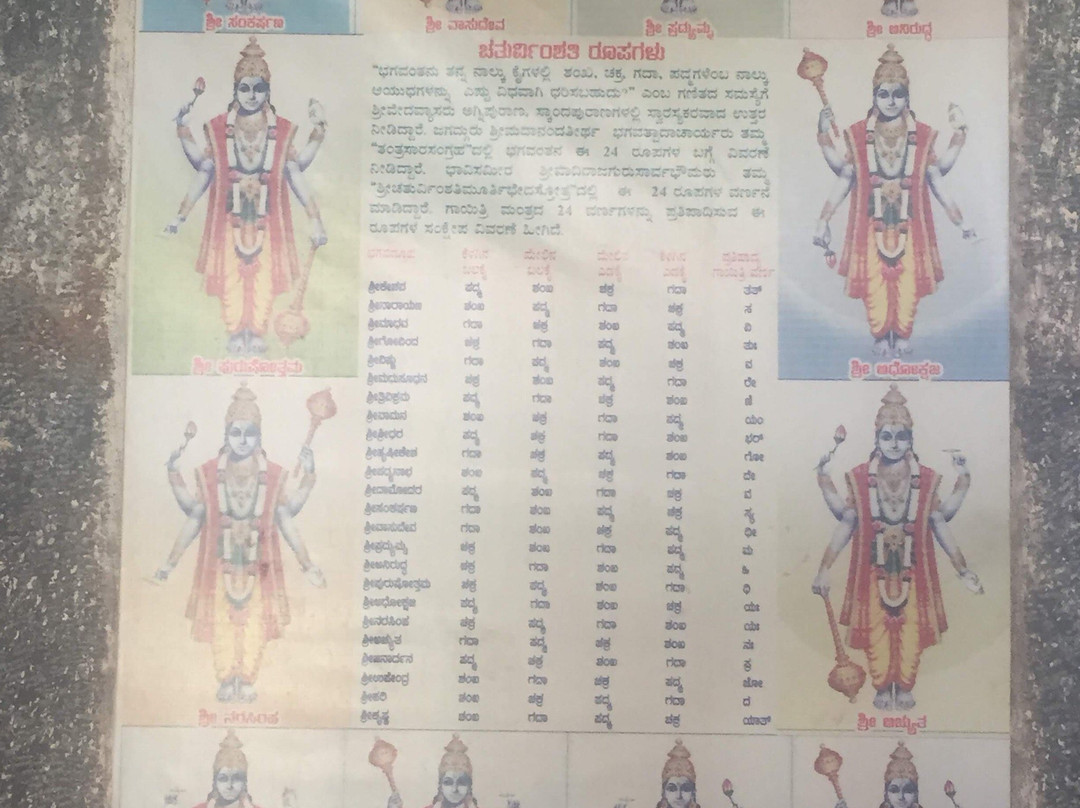 ಶ್ರೀ ಸಂಕರ್ಷಣ
ಶ್ರೀ ವಾಸುದೇವ
ಶ್ರೀ ಪ್ರದ್ಯುಮ್ನ
ಶ್ರೀ ಅನಿರುದ್ಧ
ಚತುರ್ವಿಂಶತಿ ರೂಪಗಳು
"ಭಗವಂತನು ತನ್ನ ನಾಲ್ಕು ಕೈಗಳಲ್ಲಿ ಶಂಖ, ಚಕ್ರ, ಗದಾ, ಪದ್ಮಗಳೆಂಬ ನಾಲ್ಕು
ಆಯುಧಗಳನ್ನು ಎಷ್ಟು ವಿಧವಾಗಿ ಧರಿಸಬಹುದು?" ಎಂಬ ಗಣಿತದ ಸಮಸ್ಯೆಗೆ
ಶ್ರೀವೇದವ್ಯಾಸರು ಅಗ್ನಿಪುರಾಣ, ಸ್ಕಾಂದಪುರಾಣಗಳಲ್ಲಿ ಸ್ವಾರಸ್ಯಕರವಾದ ಉತ್ತರ
ನೀಡಿದ್ದಾರೆ. ಜಗದ್ಗುರು ಶ್ರೀಮದಾನಂದತೀರ್ಥ ಭಗವತ್ಪಾದಾಚಾರ್ಯರು ತಮ್ಮ
"ತಂತ್ರಸಾರಸಂಗ್ರಹ"ದಲ್ಲಿ ಭಗವಂತನ ಈ 24 ರೂಪಗಳ ಬಗ್ಗೆ ವಿವರಣೆ
ನೀಡಿದ್ದಾರೆ. ಭಾವಿಸಮೀರ ಶ್ರೀಮದ್ವಾದಿರಾಜಗುರುಸಾರ್ವಭೌಮರು ತಮ್ಮ
"ಶ್ರೀಚತುರ್ವಿಂಶತಿಮೂರ್ತಿಭೇದಸ್ತೋತ್ರ"ದಲ್ಲಿ ಈ 24 ರೂಪಗಳ ವರ್ಣನೆ
ಮಾಡಿದ್ದಾರೆ. ಗಾಯಿತ್ರಿ ಮಂತ್ರದ 24 ವರ್ಣಗಳನ್ನು ಪ್ರತಿಪಾದಿಸುವ ಈ
ರೂಪಗಳ ಸಂಕ್ಷೇಪ ವಿವರಣೆ ಹೀಗಿದೆ.
ಭಗವದ್ರೂಪ ಕೆಳಗಿನ ಮೇಲಿನ ಮೇಲಿನ ಕೆಳಗಿನ ಪ್ರತಿಪಾದ್ಯ
ಬಲಕೈ ಬಲಕೈ ಎಡಕೈ ಎಡಕೈ ಗಾಯಿತ್ರಿ ವರ್ಣ
ಶ್ರೀಕೇಶವ ಪದ್ಮ ಶಂಖ ಚಕ್ರ ಗದಾ ತತ್
ಶ್ರೀನಾರಾಯಣ ಶಂಖ ಪದ್ಮ ಗದಾ ಚಕ್ರ ಸ
ಶ್ರೀಮಾಧವ ಗದಾ ಚಕ್ರ ಶಂಖ ಪದ್ಮ ವಿ
ಶ್ರೀಗೋವಿಂದ ಚಕ್ರ ಗದಾ ಪದ್ಮ ಶಂಖ ತುಃ
ಶ್ರೀವಿಷ್ಣು ಗದಾ ಪದ್ಮ ಶಂಖ ಚಕ್ರ ವ
ಶ್ರೀಮಧುಸೂಧನ ಚಕ್ರ ಶಂಖ ಪದ್ಮ ಗದಾ ರೇ
ಶ್ರೀತ್ರಿವಿಕ್ರಮ ಪದ್ಮ ಗದಾ ಚಕ್ರ ಶಂಖ ಣಿ
ಶ್ರೀವಾಮನ ಶಂಖ ಚಕ್ರ ಗದಾ ಪದ್ಮ ಯಂ
ಶ್ರೀಶ್ರೀಧರ ಪದ್ಮ ಚಕ್ರ ಗದಾ ಶಂಖ ಭರ್
ಶ್ರೀಹೃಷೀಕೇಶ ಗದಾ ಚಕ್ರ ಪದ್ಮ ಶಂಖ ಗೋ
ಶ್ರೀಪದ್ಮನಾಭ ಶಂಖ ಪದ್ಮ ಚಕ್ರ ಗದಾ ದೇ
ಶ್ರೀದಾಮೋದರ ಪದ್ಮ ಶಂಖ ಗದಾ ಚಕ್ರ ವ
ಶ್ರೀಸಂಕರ್ಷಣ ಗದಾ ಶಂಖ ಪದ್ಮ ಚಕ್ರ ಸ್ಯ
ಶ್ರೀವಾಸುದೇವ ಗದಾ ಶಂಖ ಚಕ್ರ ಪದ್ಮ ಧೀ
ಶ್ರೀಪ್ರದ್ಯುಮ್ನ ಚಕ್ರ ಶಂಖ ಗದಾ ಪದ್ಮ ಮ
ಶ್ರೀಅನಿರುದ್ಧ ಚಕ್ರ ಗದಾ ಶಂಖ ಪದ್ಮ ಹಿ
ಶ್ರೀಪುರುಷೋತ್ತಮ ಚಕ್ರ ಪದ್ಮ ಶಂಖ ಗದಾ ಧಿ
ಶ್ರೀಅಧೋಕ್ಷಜ ಪದ್ಮ ಗದಾ ಶಂಖ ಚಕ್ರ ಯಃ
ಶ್ರೀನರಸಿಂಹ ಚಕ್ರ ಪದ್ಮ ಗದಾ ಶಂಖ ಯಃ
ಶ್ರೀಅಚ್ಯುತ ಗದಾ ಪದ್ಮ ಚಕ್ರ ಶಂಖ ನಃ
ಶ್ರೀಜನಾರ್ದನ ಪದ್ಮ ಚಕ್ರ ಶಂಖ ಗದಾ ಪ್ರ
ಶ್ರೀಉಪೇಂದ್ರ ಶಂಖ ಗದಾ ಚಕ್ರ ಪದ್ಮ ಚೋ
ಶ್ರೀಹರಿ ಶಂಖ ಚಕ್ರ ಪದ್ಮ ಗದಾ ದ
ಶ್ರೀಕೃಷ್ಣ ಶಂಖ ಗದಾ ಪದ್ಮ ಚಕ್ರ ಯಾತ್
ಶ್ರೀ ಪುರುಷೋತ್ತಮ
ಶ್ರೀ ಅಧೋಕ್ಷಜ
ಶ್ರೀ ನರಸಿಂಹ
ಶ್ರೀ ಅಚ್ಯುತ